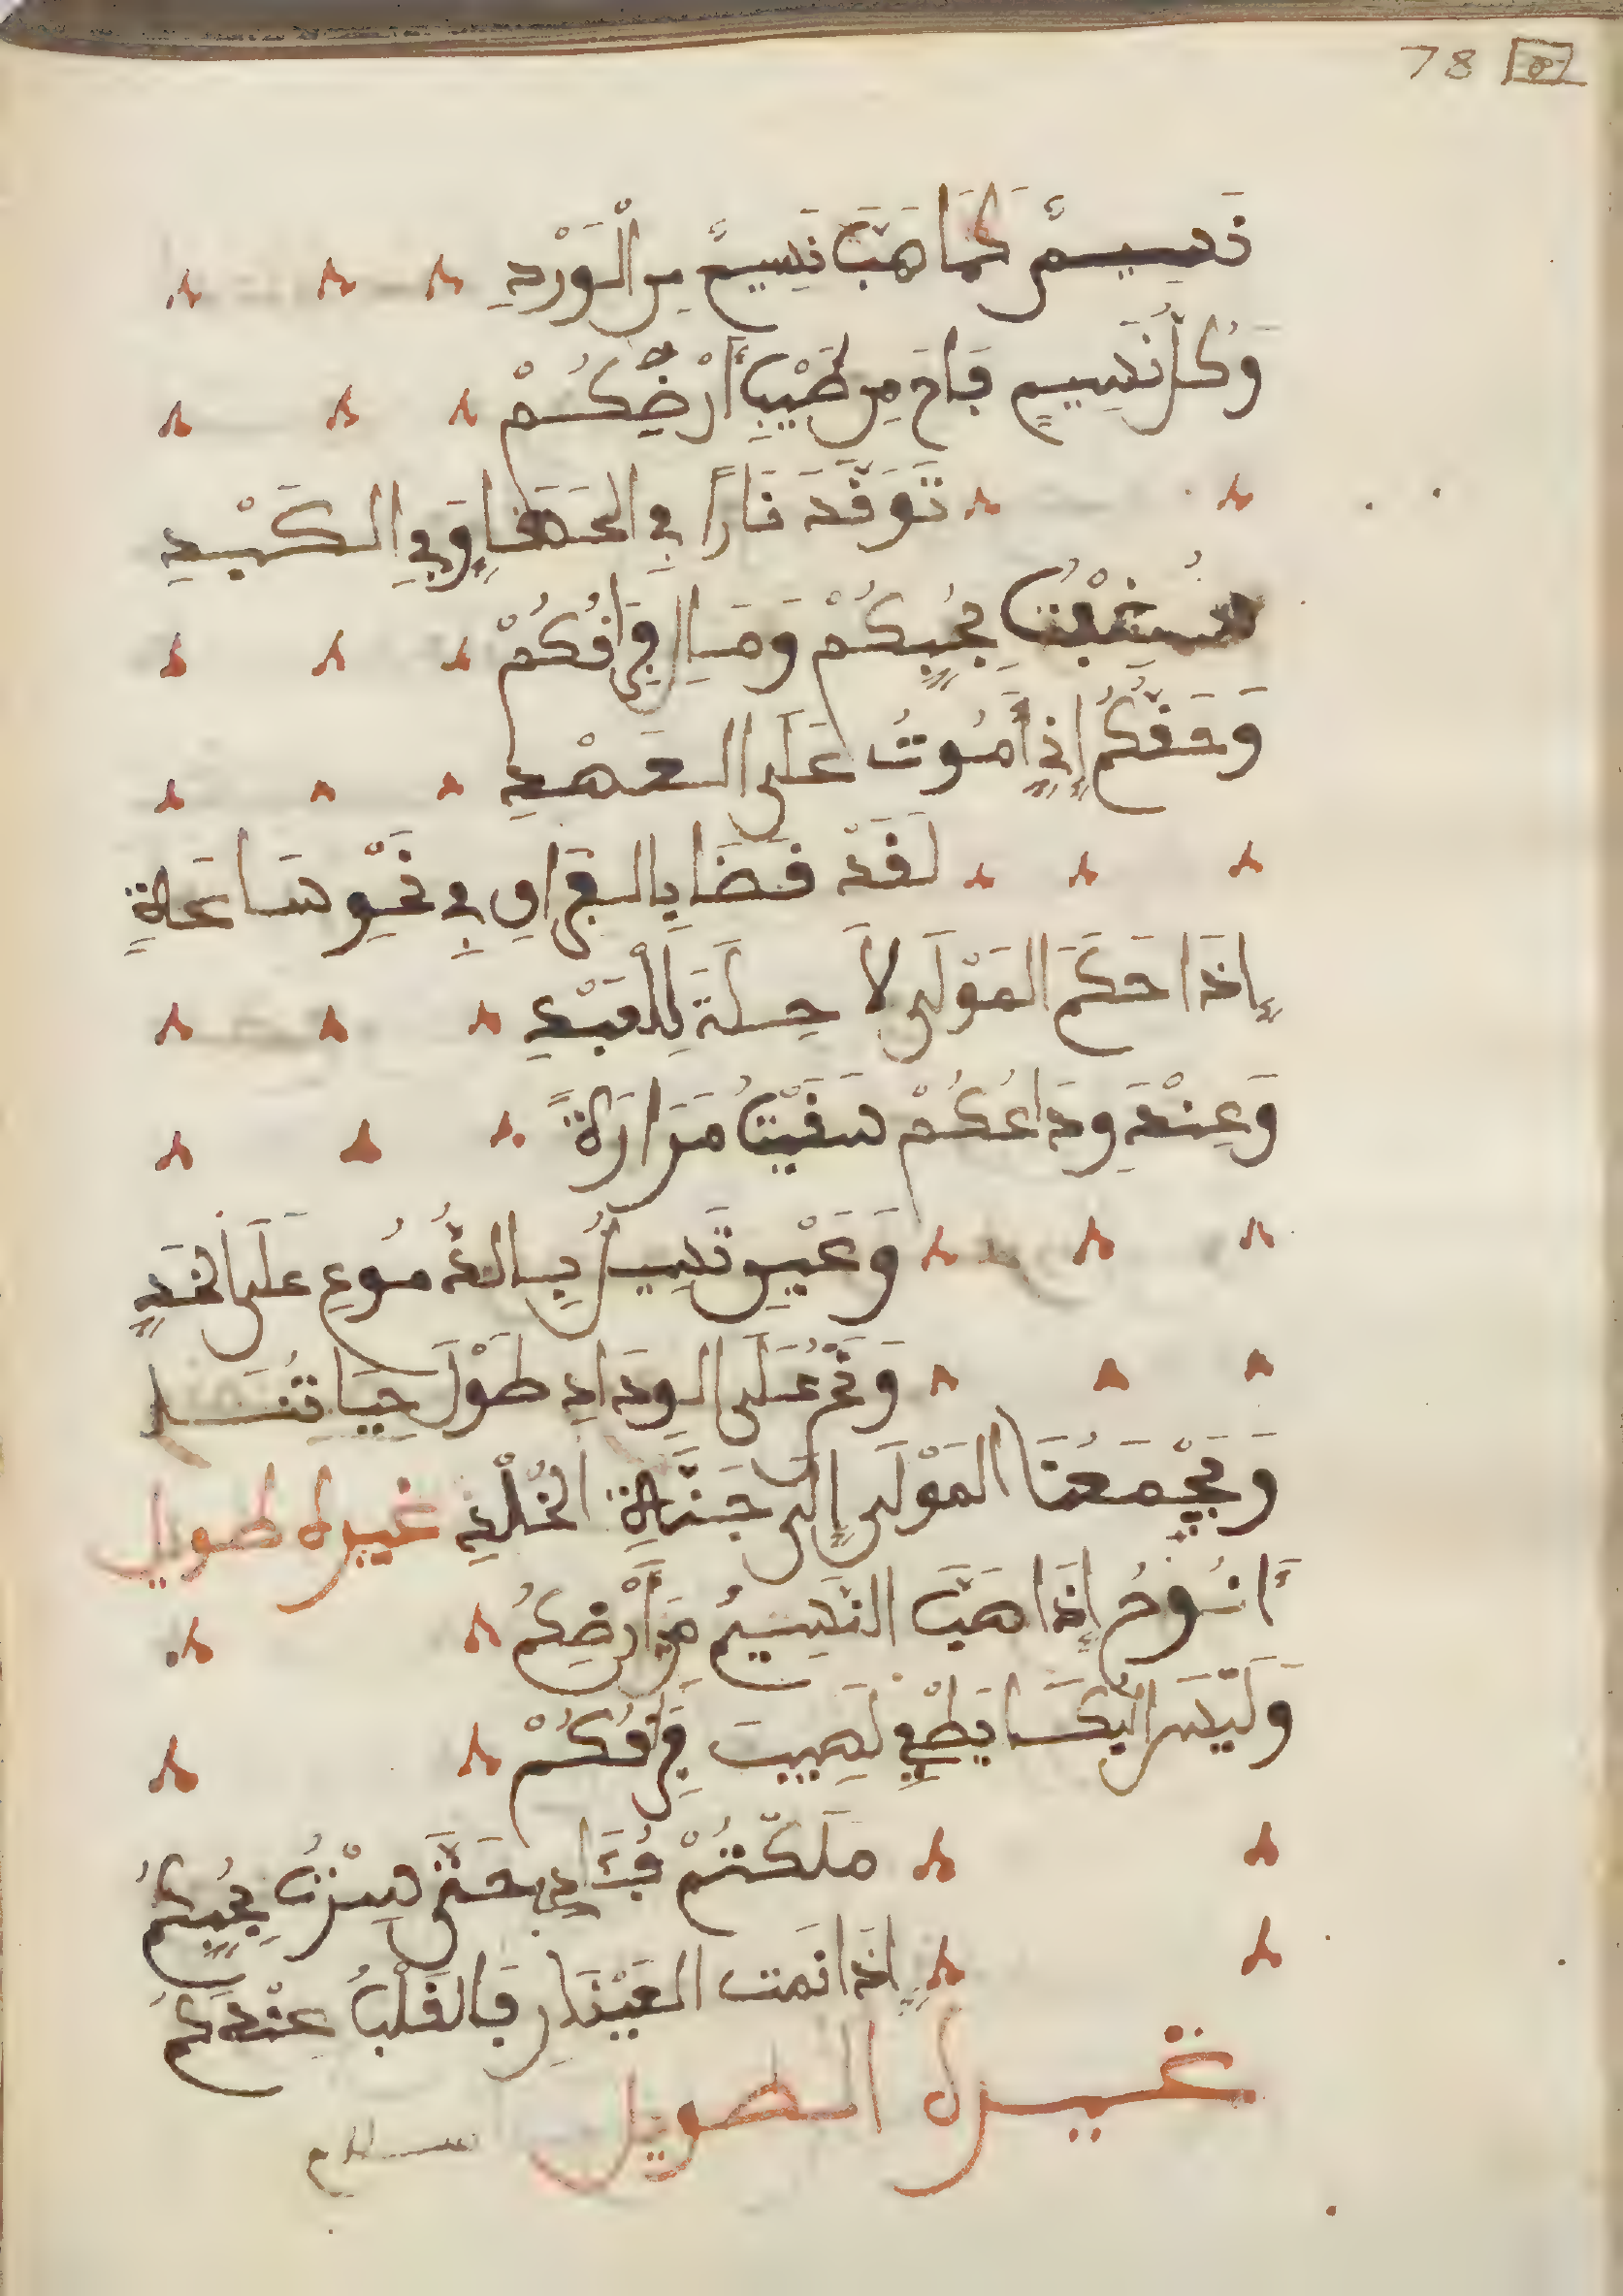 78
نَسِيمٌ كَمَا هَبَّ نَسِيمٌ مِن الْوَرْدِ
وَكُلُّ نَسِيمٍ فَاحَ مِن طَيْبِ أَرْضِكُمْ
تَوَقَّدَ نَاراً فِي الحَشَا وَفِي الكَبْدِ
شُغِبْتُ بِحُبِّكُمْ وَمَالِ فِرَاقُكُمْ
وَحَقِّكُمُ إِنِّي أَمُوتُ عَلَى العَهْدِ
لَقَدْ قَضَا بِالفِرَاقِ فِي نَحْوِ سَاعَةٍ
إِذَا حَكَمَ المَوْلَى لاَ حِيلَةَ لِلْعَبْدِ
وَعِنْدَ وِدَاعُكُمْ سَقَيْتُ مَرَارَةً
وَعَيْنِ تَسِيلُ بِالدُّمُوعِ عَلَى الخَدِّ
وَنَمُّ عَلَى الوِدَادِ طَوْلَ حَيَاتُنَا
وَيَجْمَعُنَا المَوْلَى إِلَى جَنَّةِ الخُلْدِ غيره طويل
أَنُوحُ إِذَا هَبَّ النَّسِيمُ مِنْ أَرْضِكُمُ
وَلَيْسَ البُكَا يَطْفِي لَهِيبَ فِرَاقُكُمْ
مَلَكْتُمْ فُؤَادِي حَتَّى سِرْتُ بِحُبِّكُمُ
إِذَا نَمَت العَيْنَانِ فَالقَلْبُ عِنْدَكُمُ
غيره الطويل
سلام